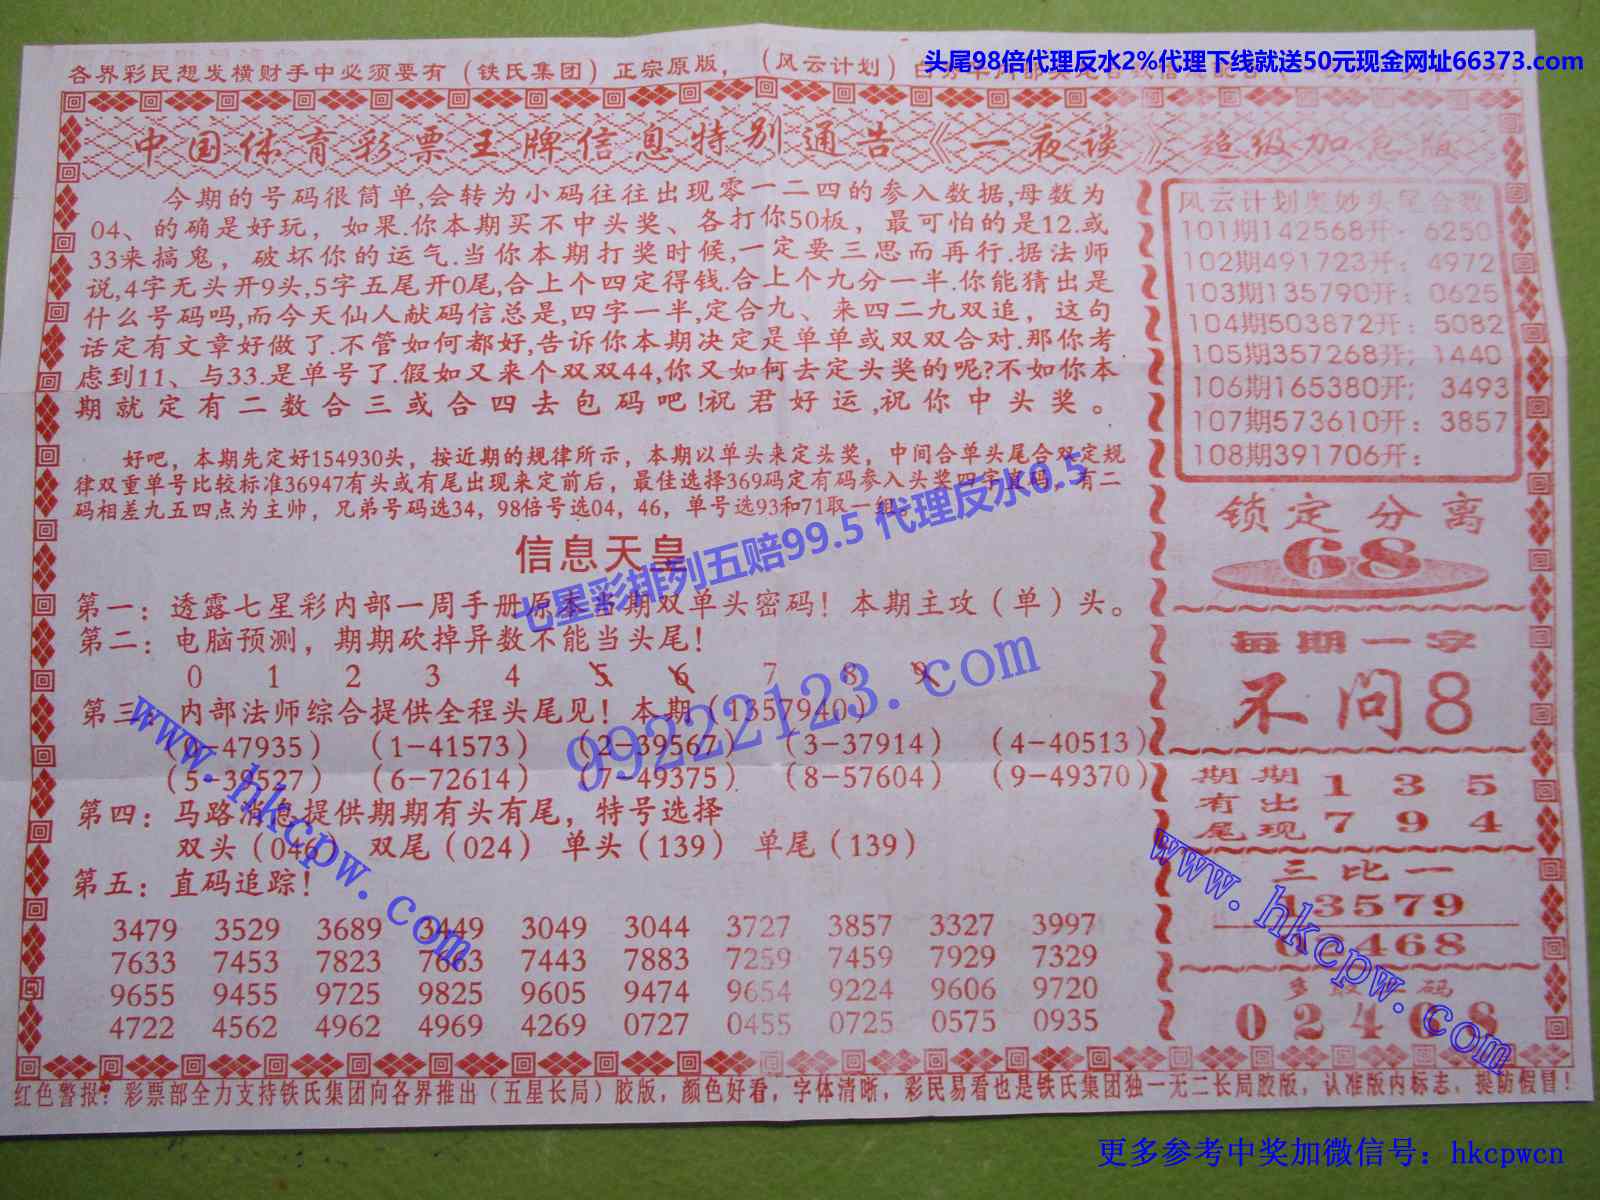 头尾98倍代理反水2%代理下线就送50元现金网址66373.com
各界彩民想发横财手中必须要有（铁氏集团）正宗原版，（风云计划）
中国体育彩票王牌信息特别通告《一夜谈》超级加急版
今期的号码很简单,会转为小码往往出现零一二四的参入数据,母数为
04、的确是好玩，如果.你本期买不中头奖、各打你50板，最可怕的是12.或
33来搞鬼，破坏你的运气.当你本期打奖时候,一定要三思而再行.据法师
说,4字无头开9头,5字五尾开0尾,合上个四定得钱.合上个九分一半.你能猜出是
什么号码吗,而今天仙人献码信总是,四字一半,定合九、来四二九双追，这句
话定有文章好做了.不管如何都好,告诉你本期决定是单单或双双合对.那你考
虑到11、与33.是单号了.假如又来个双双44,你又如何去定头奖的呢?不如你本
期就定有二数合三或合四去包码吧!祝君好运,祝你中头奖。
好吧，本期先定好154930头，按近期的规律所示，本期以单头来定头奖，中间合单头尾合双定规
律双重单号比较标准36947有头或有尾出现来定前后，最佳选择369码定有码参入头奖四字直码，有二
码相差九五四点为主帅，兄弟号码选34，98倍号选04，46，单号选93和71取一组。
七星彩排列五赔99.5 代理反水0.5
信息天皇
第一：透露七星彩内部一周手册原本当期双单头密码！本期主攻（单）头。
第二：电脑预测，期期砍掉异数不能当头尾！
0 1 2 3 4 5 6 7 8 9
99222123.com
第三：内部法师综合提供全程头尾见！本期（1357940）
（0-47935）（1-41573）（2-39567）（3-37914）（4-40513）
（5-39527）（6-72614）（7-49375）（8-57604）（9-49370）
www.hkcpw.com
第四：马路消息提供期期有头有尾，特号选择
双头（046） 双尾（024） 单头（139） 单尾（139）
第五：直码追踪！
3479 3529 3689 3449 3049 3044 3727 3857 3327 3997
7633 7453 7823 7663 7443 7883 7259 7459 7929 7329
9655 9455 9725 9825 9605 9474 9654 9224 9606 9720
4722 4562 4962 4969 4269 0727 0455 0725 0575 0935
风云计划奥妙头尾合数
101期142568开：6250
102期491723开：4972
103期135790开：0625
104期503872开：5082
105期357268开；1440
106期165380开；3493
107期573610开：3857
108期391706开：
锁定分离
68
每期一字
不问8
期期 1 3 5
有出
尾现 7 9 4
三比一
13579
02468
www.hkcpw.com
02468
红色警报：彩票部全力支持铁氏集团向各界推出（五星长局）胶版，颜色好看，字体清晰，彩民易看也是铁氏集团独一无二长局胶版，认准版内标志，提防假冒！
更多参考中奖加微信号：hkcpwcn